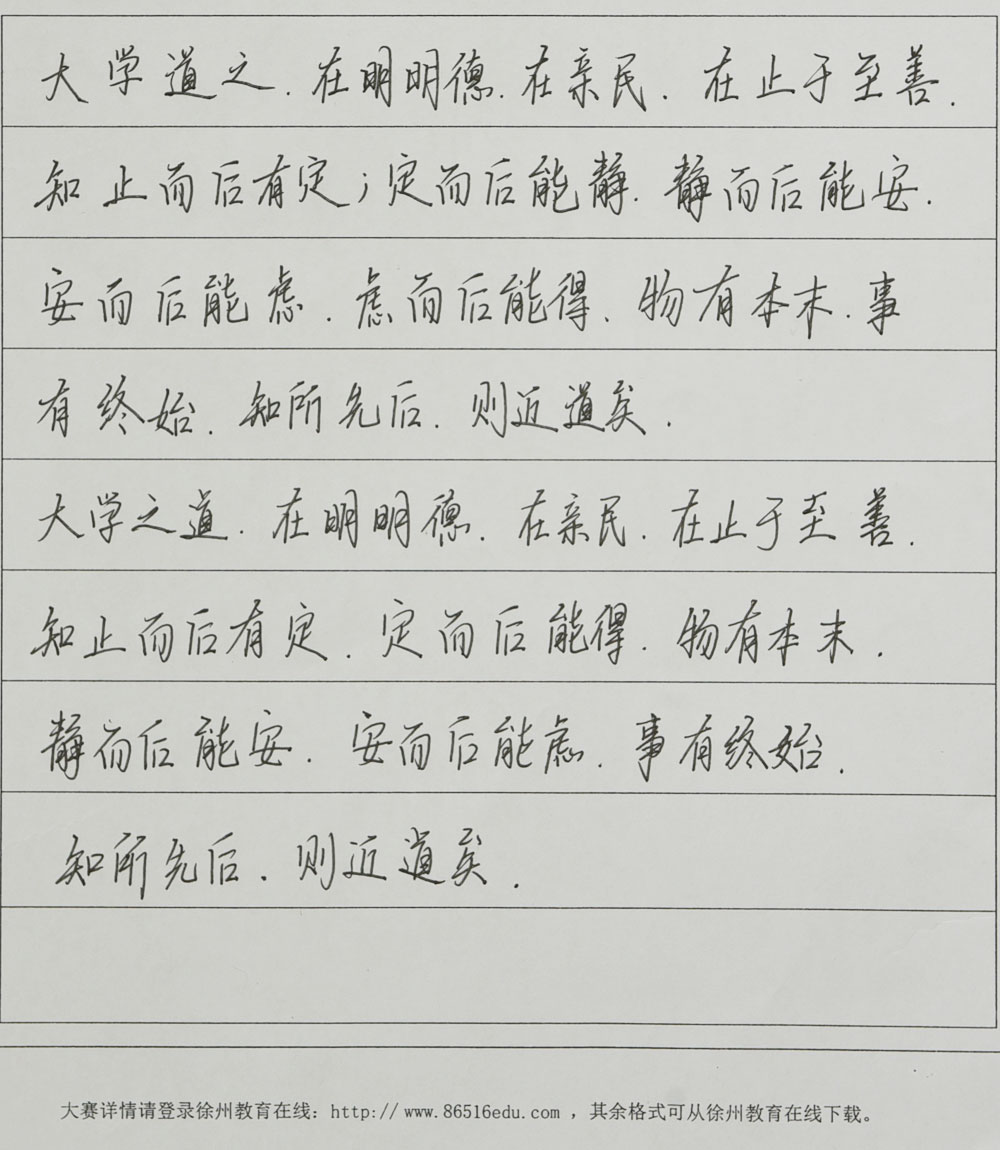 大学道之.在明明德.在亲民.在止于至善.
知止而后有定;定而后能静.静而后能安.
安而后能虑.虑而后能得.物有本末.事
有终始.知所先后.则近道矣.
大学之道.在明明德.在亲民.在止于至善.
知止而后有定.定而后能得.物有本末.
静而后能安.安而后能虑.事有终始.
知所先后.则近道矣.
大赛详情请登录徐州教育在线：http://www.86516edu.com，其余格式可从徐州教育在线下载。